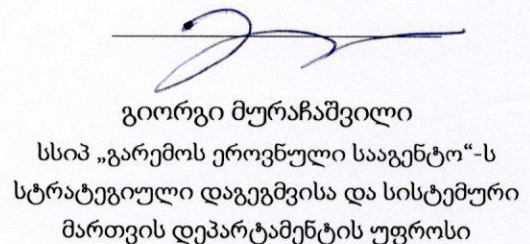 გიორგი მურაჩაშვილი
სსიპ „გარემოს ეროვნული სააგენტო“-ს
სტრატეგიული დაგეგმვისა და სისტემური
მართვის დეპარტამენტის უფროსი